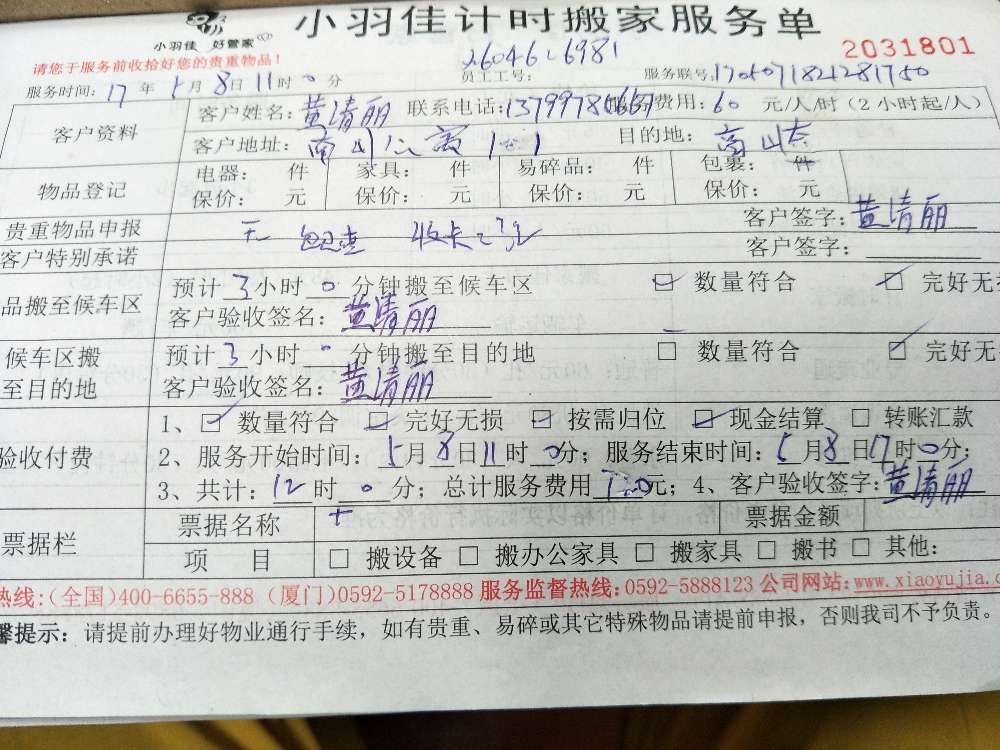 小羽佳计时搬家服务单
小羽佳 好管家
2031801
请您于服务前收拾好您的贵重物品！
员工工号：
服务联号：
服务时间：17年5月8日11时0分
客户资料
客户姓名：黄清丽 联系电话： 费用：60元/人/时（2小时起/人）
客户地址：南山公寓 目的地：
物品登记
电器： 件 家具： 件 易碎品： 件 包裹： 件
保价： 元 保价： 元 保价： 元 保价： 元
贵重物品申报 无 客户签字：黄清丽
客户特别承诺 客户签字：
品搬至候车区
预计3小时0分钟搬至候车区 数量符合 完好无损
客户验收签名：黄清丽
候车区搬至目的地
预计3小时0分钟搬至目的地 数量符合 完好无
客户验收签名：黄清丽
验收付费
1、数量符合 完好无损 按需归位 现金结算 转账汇款
2、服务开始时间：5月8日11时0分；服务结束时间：5月8日17时0分；
3、共计：12时0分；总计服务费用720元；4、客户验收签字：黄清丽
票据栏
票据名称 票据金额
项 目 搬设备 搬办公家具 搬家具 搬书 其他：
热线：(全国)400-6655-888 (厦门)0592-5178888 服务监督热线：0592-5888123 公司网站：www.xiaoyujia.c
馨提示：请提前办理好物业通行手续，如有贵重、易碎或其它特殊物品请提前申报，否则我司不予负责。